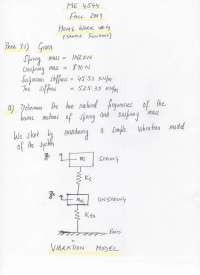 ME 4544
FALL 2009
HOME WORK
(SAMPLE SOLUTION)
Given
Sprung mass =
Unsprung mass =
Suspension stiffness = 45.53 KN/m
Tire stiffness = 525.35 KN/m
a) Determine the two natural frequencies of the
bounce motions of sprung and unsprung mass
We start by considering a simple vibration model
of the system
SPRUNG
Ks
UNSPRUNG
VIBRATION MODEL